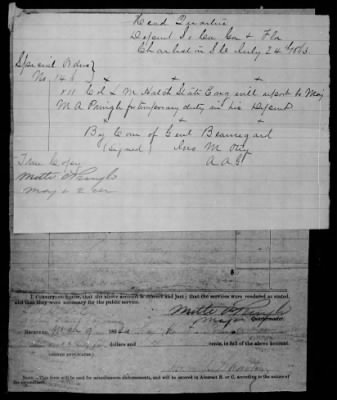 Head Quarters
Depart So Ca Ga & Fla
Charleston S C July 24th 1863
Special Orders
No. 146
XII Col L M Hatch State Corps will report to Maj
M A Pringle for temporary duty in his Depart
By Com of Genl Beauregard
(Signed) Jno M Otey
A A G
True Copy
Motte A Pringle
Maj & Q M
I CERTIFY, on honor, that the above account is correct and just; that the services were rendered as stated,
and that they were necessary for the public service.
Motte A Pringle
Maj Quartermaster.
RECEIVED
dollars and
cents, in full of the above account.
(SIGNED DUPLICATES.)
NOTE.—This form will be used for miscellaneous disbursements, and will be entered in Abstract B. or C. according to the nature of
the expenditure.